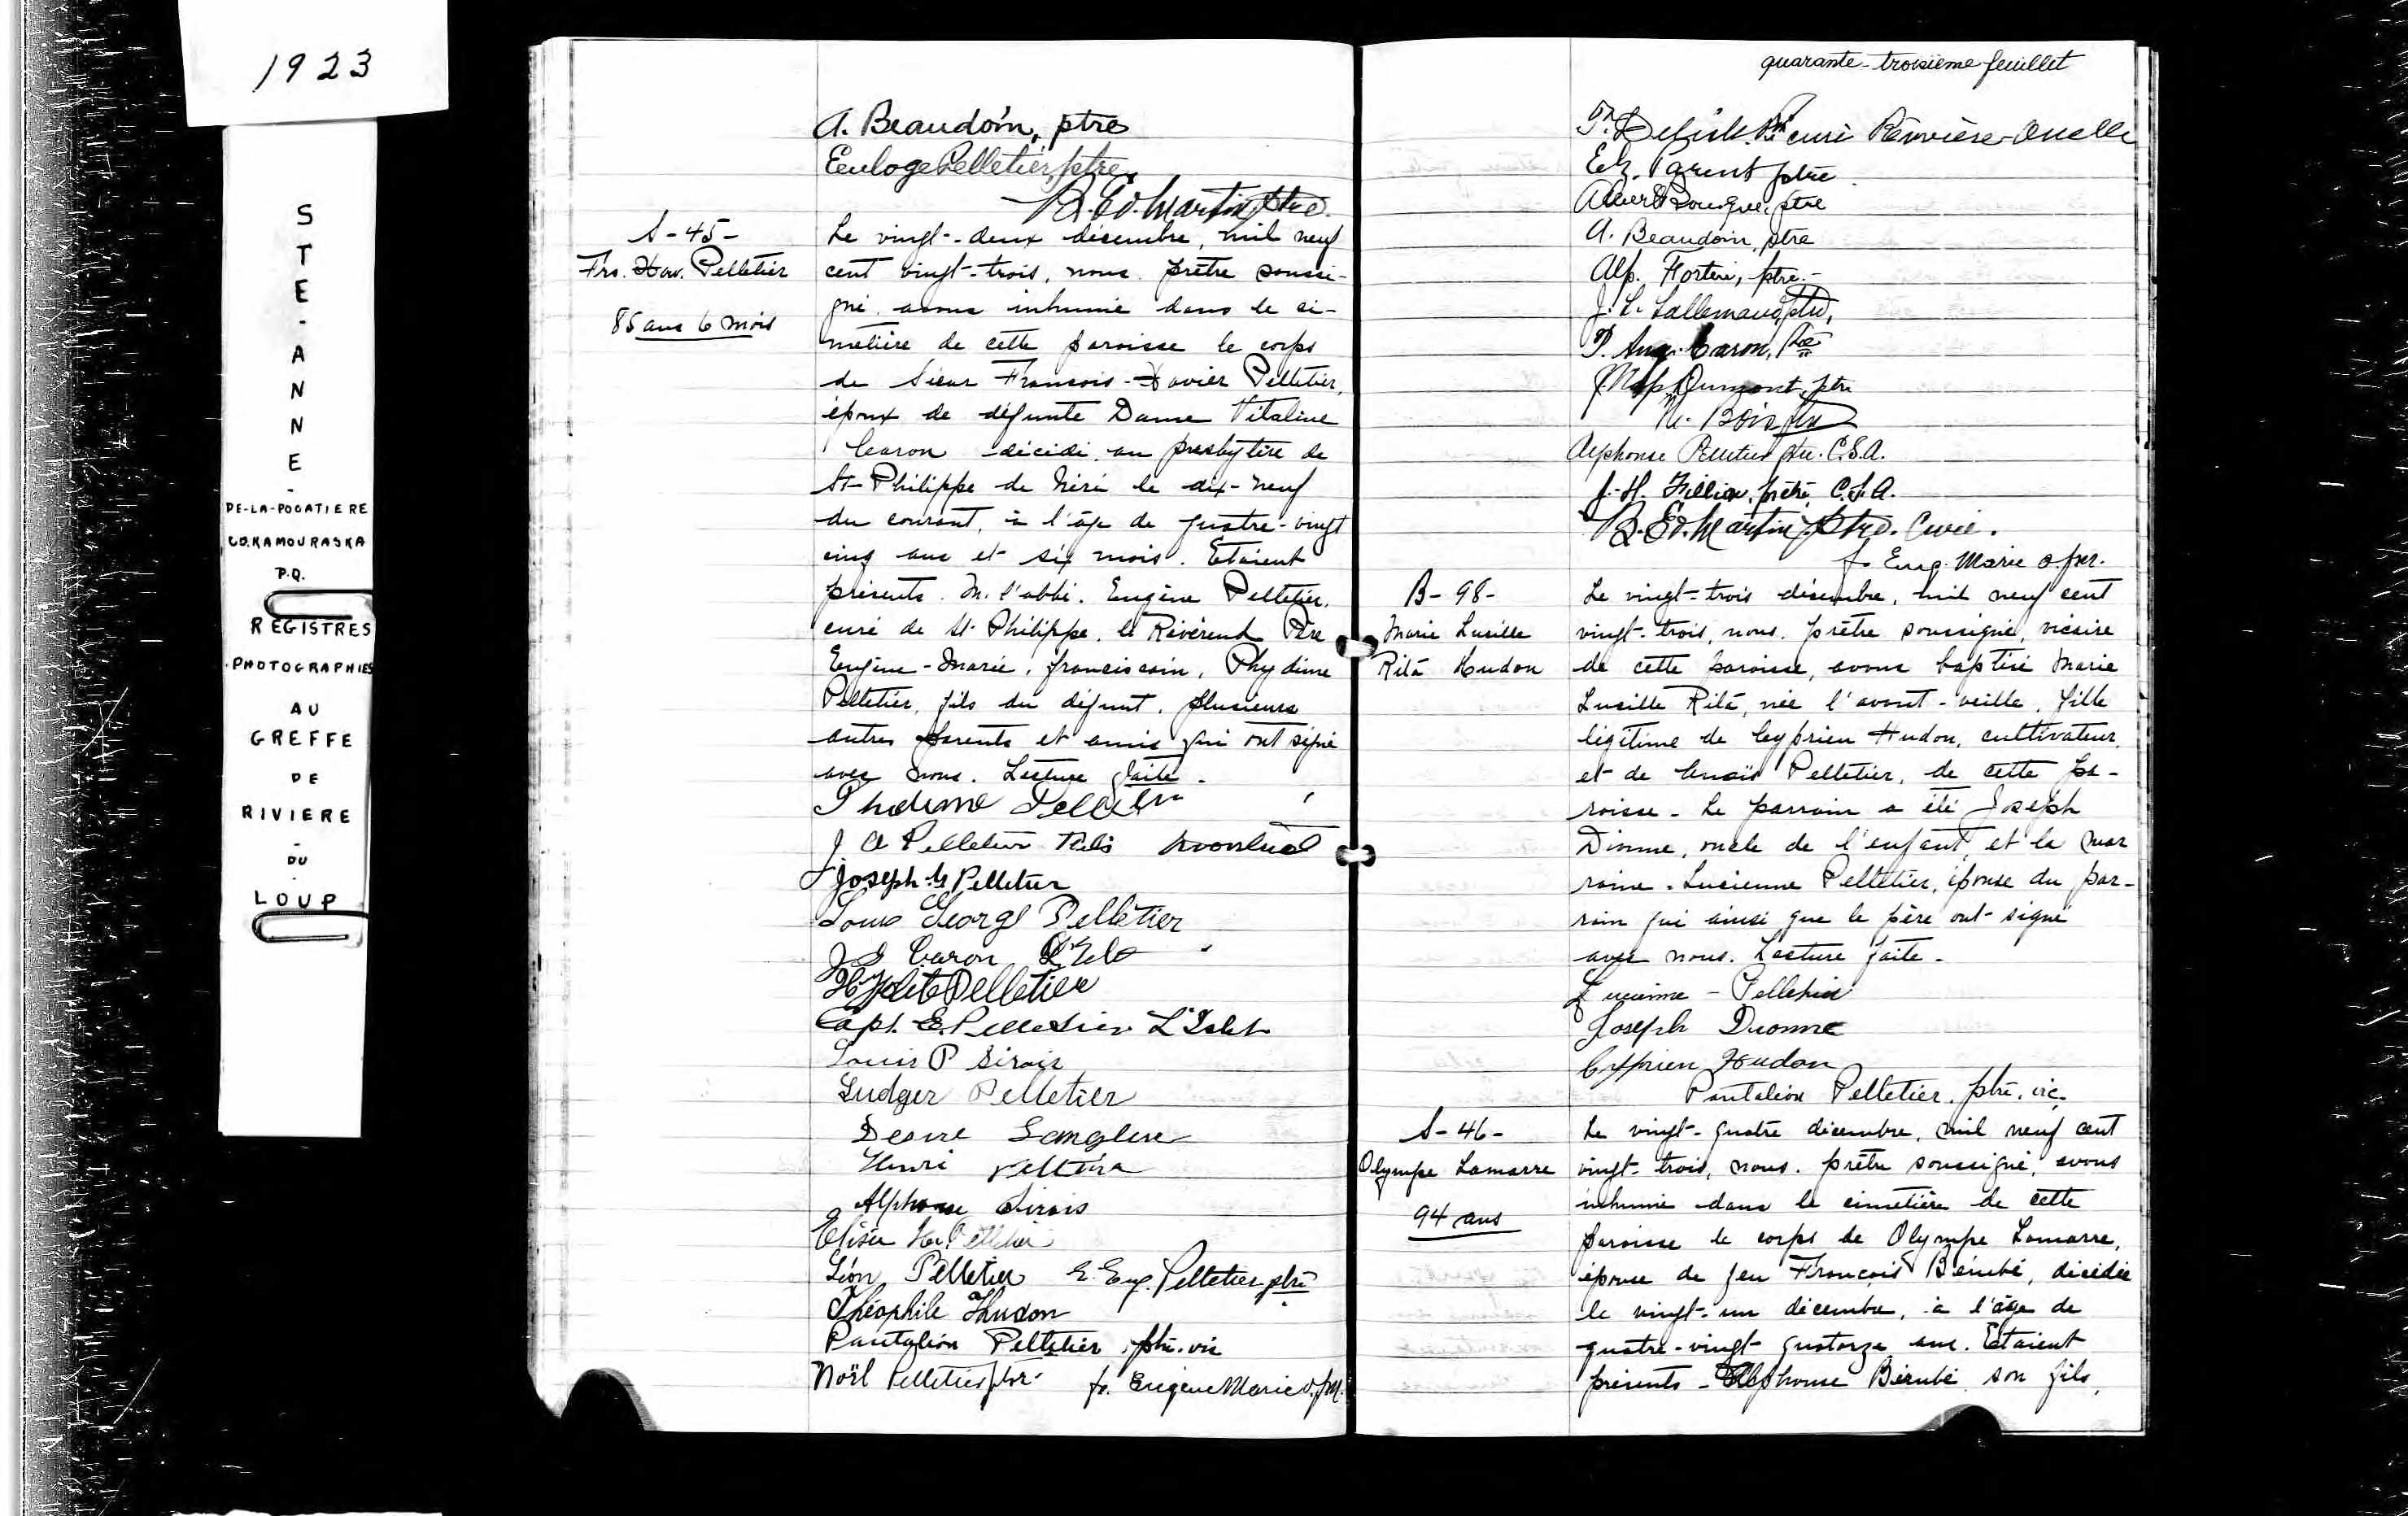 1923
STE-ANNE
-
DE-LA-POCATIERE
CO. KAMOURASKA
P.Q.
REGISTRES
PHOTOGRAPHIES
AU
GREFFE
DE
RIVIERE
-
DU
-
LOUP
A. Beaudoin, ptre
Euloge Pelletier, ptre
B. Ed. Martin ptre.
S-45-
Frs. Xav. Pelletier
85 ans 6 mois
Le vingt-deux décembre, mil neuf
cent vingt-trois, nous prêtre soussi-
gné avons inhumé dans le ci-
metière de cette paroisse le corps
de Sieur François-Xavier Pelletier,
époux de défunte Dame Vitaline
Caron décédé au presbytère de
St-Philippe de Néri le dix-neuf
du courant, à l'âge de quatre-vingt
cinq ans et six mois. Etaient
présents M. l'abbé Eugène Pelletier,
curé de St. Philippe, le Révérend Père
Eugène-Marie, franciscain, Phydime
Pelletier, fils du défunt, plusieurs
autres parents et amis qui ont signé
avec nous. Lecture faite.
Phidime Pelletier
J A Pelletier Montreal
Joseph Pelletier
Louis George Pelletier
J Caron
Hypolite Pelletier
Capt. E. Pelletier L'Islet
Louis P Sirois
Ludger Pelletier
Desire Langlois
Henri Pelletier
Alphonse Sirois
Elisée Pelletier
Léon Pelletier E. Eug. Pelletier ptre
Théophile Hudon
Pantaléon Pelletier, ptre. vic
Noël Pelletier ptre fr. Eugène Marie o.f.m.
quarante-troisième feuillet
curé Rivière-Ouelle
Ez. Parent ptre
Albert ptre
A. Beaudoin, ptre
Alp. Fortin, ptre.-
J. E. Lallemand, ptre,
P. Aug. Caron, Ptre
Dumont, ptre
N. Bois ptre
Alphonse Pelletier ptre. C.S.A.
J.-H. Fillion, prêtre, C.S.A.
B. Ed. Martin, Ptre. Curé.
fr. Eug. Marie o.f.m.
B-98-
Marie Lucille
Rita Hudon
Le vingt-trois décembre, mil neuf cent
vingt-trois, nous, prêtre soussigné, vicaire
de cette paroisse, avons baptisé Marie
Lucille Rita, née l'avant-veille, fille
légitime de Cyprien Hudon, cultivateur,
et de Anaïs Pelletier, de cette pa-
roisse. Le parrain a été Joseph
Dionne, oncle de l'enfant, et la mar
raine, Lucienne Pelletier, épouse du par-
rain qui ainsi que le père ont signé
avec nous. Lecture faite.
Lucienne - Pelletier
Joseph Dionne
Cyprien Hudon
Pantaléon Pelletier, ptre. vic.
S-46-
Olympe Lamarre
94 ans
Le vingt-quatre décembre, mil neuf cent
vingt-trois, nous, prêtre soussigné, avons
inhumé dans le cimetière de cette
paroisse le corps de Olympe Lamarre,
épouse de feu François Bérubé, décédée
le vingt-un décembre, à l'âge de
quatre-vingt quatorze ans. Etaient
présents - Alphonse Bérubé son fils,